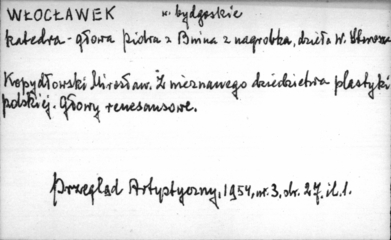 WŁOCŁAWEK w. bydgoskie
katedra - głowa Piotra z Bnina z nagrobka, dzieła W. Stwosza
Kopydłowski Mirosław. Z nieznanego dziedzictwa plastyki
polskiej. Głowy renesansowe.
Przegląd Artystyczny, 1954, nr. 3, str. 27. il. 1.